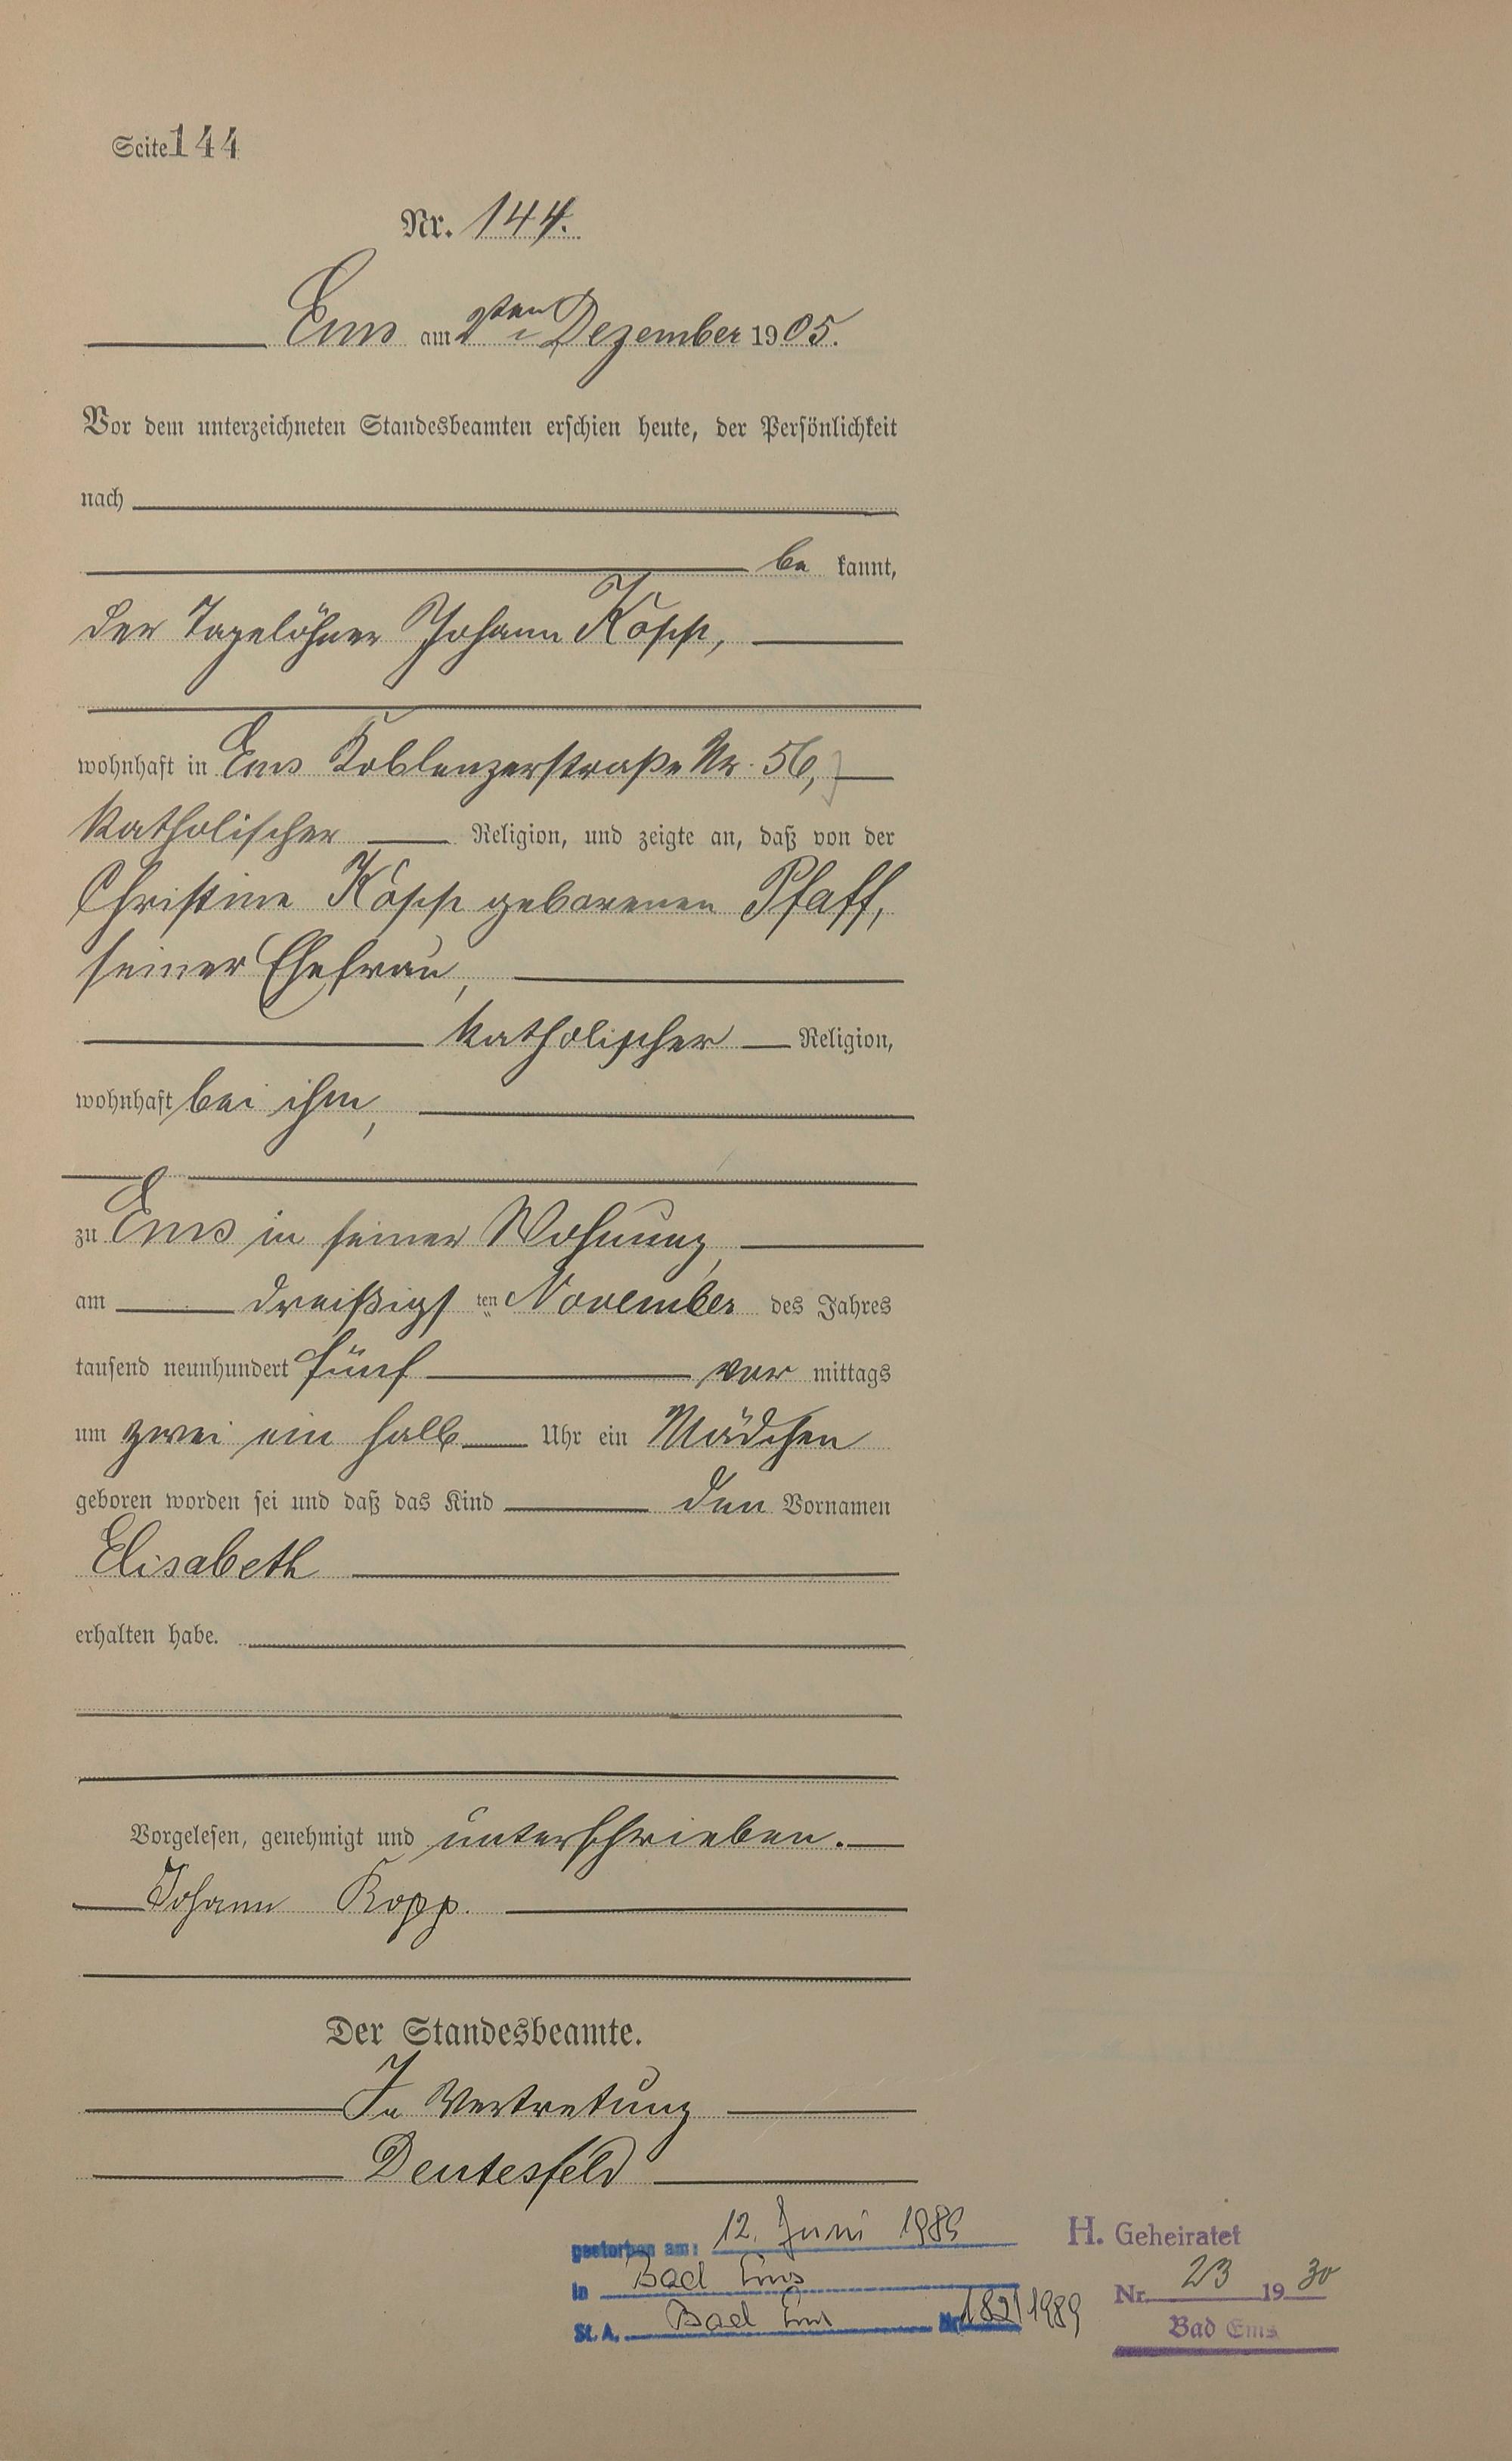 Seite 144
Nr. 144.
Ems am 2ten Dezember 1905.
Vor dem unterzeichneten Standesbeamten erschien heute, der Persönlichkeit
nach
be kannt,
der Tagelöhner Johann Kopp,
wohnhaft in Ems Koblenzerstraße Nr. 56,
katholischer Religion, und zeigte an, daß von der
Christine Kopp geborenen Pfaff,
seiner Ehefrau,
katholischer Religion,
wohnhaft bei ihm,
zu Ems in seiner Wohnung,
am dreißigst ten November des Jahres
tausend neunhundert fünf vor mittags
um zwei ein halb Uhr ein Mädchen
geboren worden sei und daß das Kind den Vornamen
Elisabeth
erhalten habe.
Vorgelesen, genehmigt und unterschrieben.
Johann Kopp.
Der Standesbeamte.
In Vertretung
Deutesfeld
gestorben am: 12. Juni 1989
in Bad Ems
St. A. Bad Ems Nr. 182/1989
H. Geheiratet
Nr. 23 1930
Bad Ems